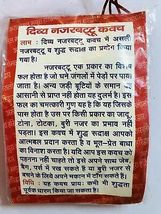 दिव्य नजरबट्टू कवच
लाभ : दिव्य नजरबट्टू कवच में असली
नजरबट्टू व शुद्ध रूद्राक्ष का प्रयोग किया
गया है।
नजरबट्टू एक प्रकार का विचित्र
फल होता है जो घने जंगलों में पेड़ों पर पाया
जाता है। अन्य जड़ी बूटियों के समान यह
आसानी से प्राप्त नहीं होता यह दुर्लभ है। इस
फल का चमत्कारी गुण यह है कि यह जिसके
पास होता है उस पर किसी प्रकार का जादू,
टोना, टोटका, बुरी नजर का प्रभाव नहीं
पड़ता। इस कवच में शुद्ध रूद्राक्ष आपको
आत्मबल प्रदान करता है व भूत-प्रेत बाधा
का निवारण करता है। यदि आप इस कवच को
पहनना नहीं चाहते तो इसे अपने साथ जेब,
बैग, पर्स में रख सकते है व बुरी नजर से
बचने के लिए अपने मकान में टांग सकते है।
विधि : यह कवच प्रायः कभी भी शुद्धता
पूर्वक धारण किया जा सकता है।